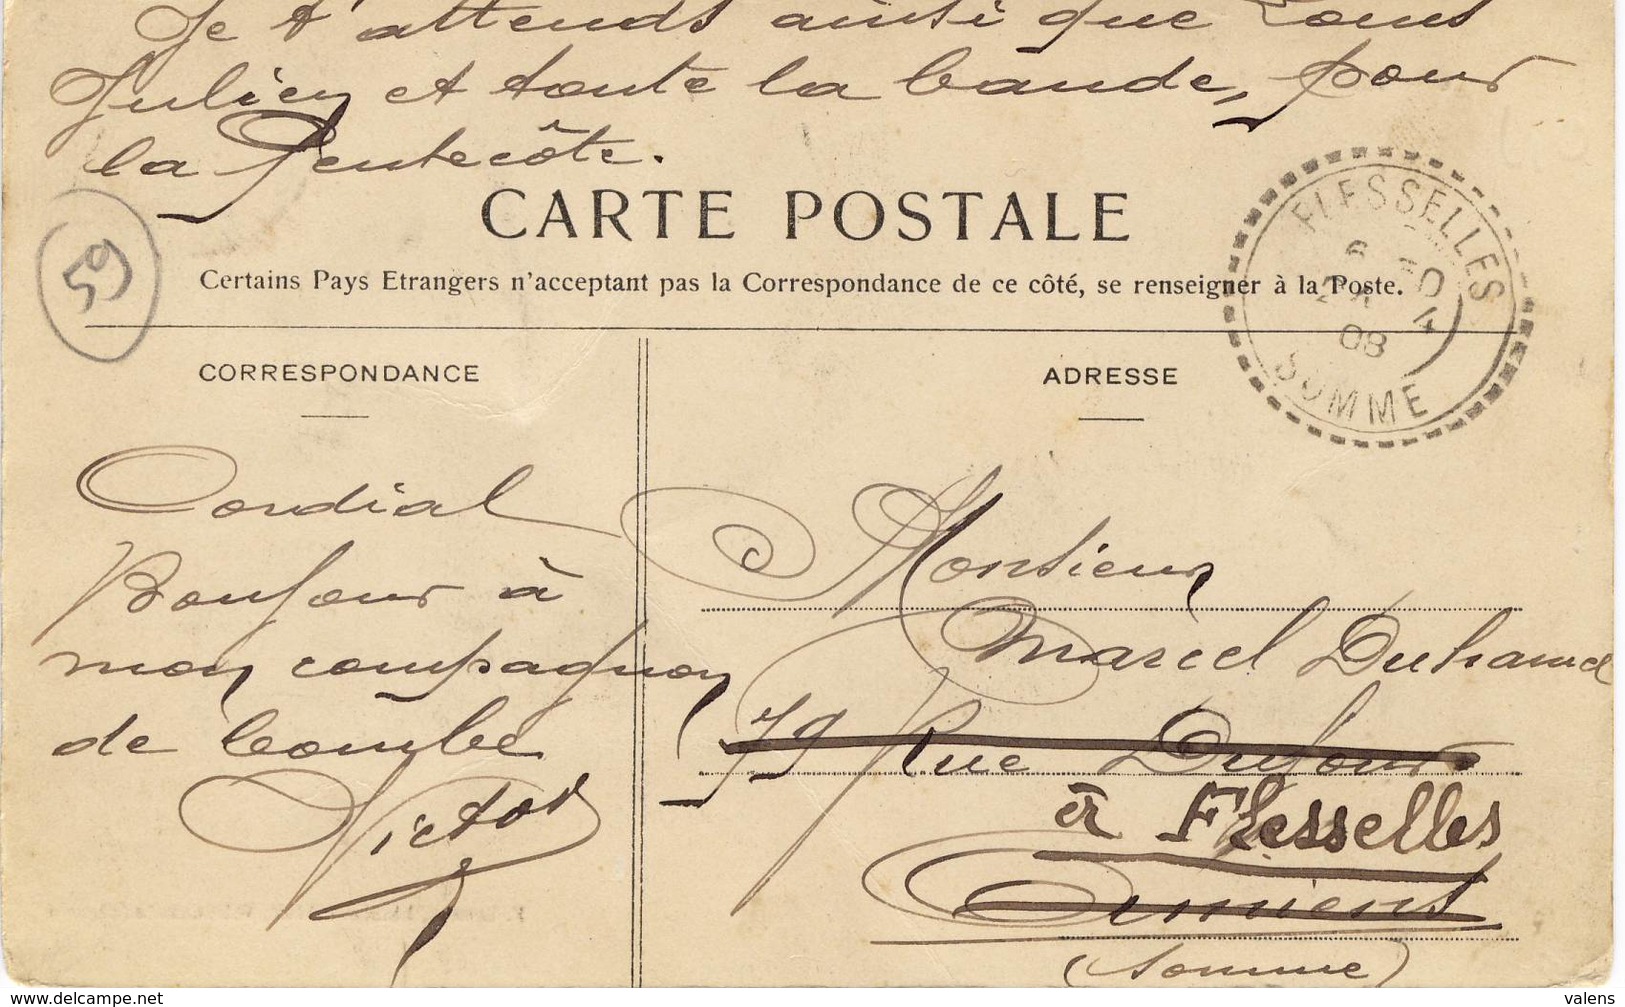 Je t'attends ainsi que Louis
Julien et toute la bande, pour
la Pentecôte.
CARTE POSTALE
Certains Pays Etrangers n'acceptant pas la Correspondance de ce côté, se renseigner à la Poste.
59
FLESSELLES
6
08
SOMME
CORRESPONDANCE
ADRESSE
Cordial
Bonjour à
mon compagnon
de combe
Victor
Monsieur
Marcel Duhamel
79 Rue Dufour
à Flesselles
Amiens
(Somme)
www.delcampe.net
valens